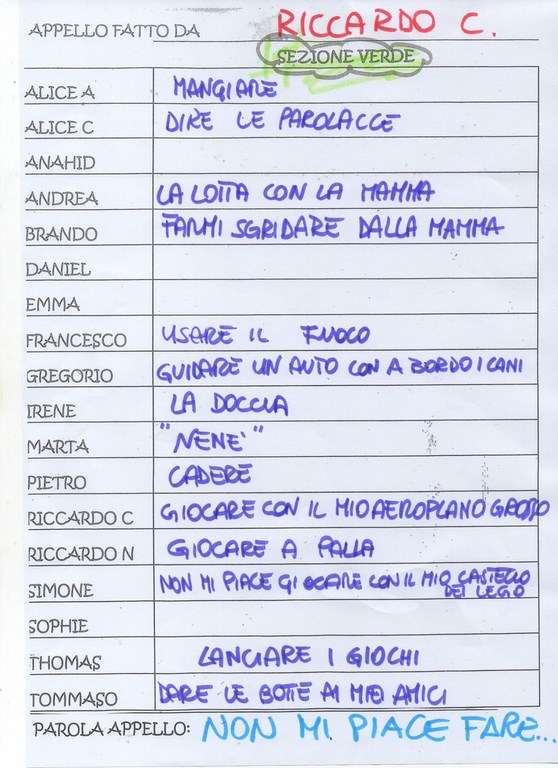 APPELLO FATTO DA RICCARDO C.
SEZIONE VERDE
ALICE A MANGIARE
ALICE C DIRE LE PAROLACCE
ANAHID
ANDREA LA LOTTA CON LA MAMMA
BRANDO FARMI SGRIDARE DALLA MAMMA
DANIEL
EMMA
FRANCESCO USARE IL FUOCO
GREGORIO GUIDARE UN AUTO CON A BORDO I CANI
IRENE LA DOCCIA
MARTA "NENE'"
PIETRO CADERE
RICCARDO C GIOCARE CON IL MIO AEROPLANO GROSSO
RICCARDO N GIOCARE A PALLA
SIMONE NON MI PIACE GIOCARE CON IL MIO CASTELLO
DEI LEGO
SOPHIE
THOMAS LANCIARE I GIOCHI
TOMMASO DARE LE BOTTE AI MIEI AMICI
PAROLA APPELLO: NON MI PIACE FARE...